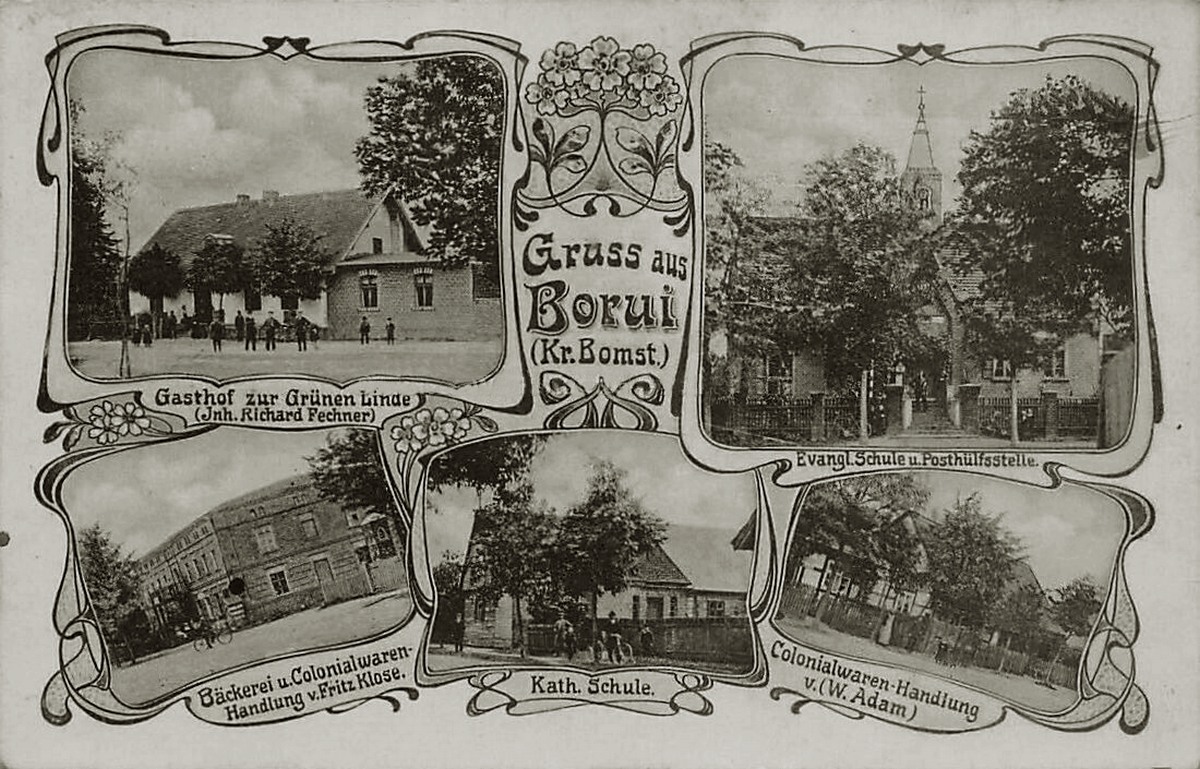 Gruss aus
Borui
(Kr. Bomst.)
Gasthof zur Grünen Linde
(Jnh. Richard Fechner)
Evangl. Schule u. Posthülfsstelle.
Bäckerei u. Colonialwaren-
Handlung v. Fritz Klose.
Kath. Schule.
Colonialwaren-Handlung
v. (W. Adam)